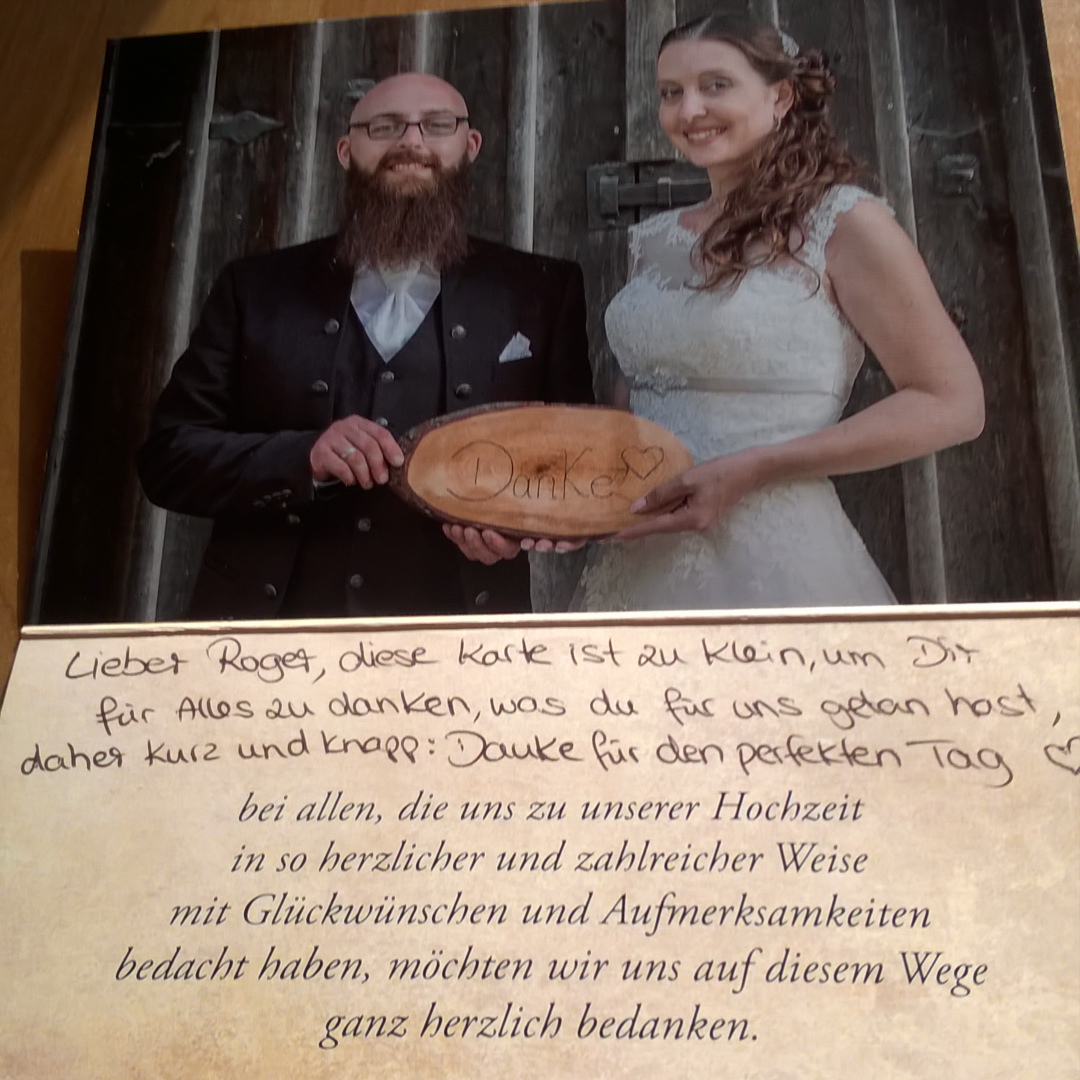 Danke
Lieber Roger, diese Karte ist zu klein, um Dir
für Alles zu danken, was du für uns getan hast,
daher kurz und knapp: Danke für den perfekten Tag ♡
bei allen, die uns zu unserer Hochzeit
in so herzlicher und zahlreicher Weise
mit Glückwünschen und Aufmerksamkeiten
bedacht haben, möchten wir uns auf diesem Wege
ganz herzlich bedanken.